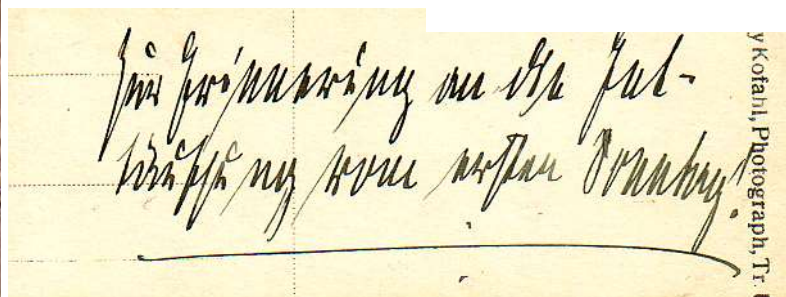 Zur Erinnerung an die Ent-
täuschung vom ersten Sonntag!
y Kofahl, Photograph, Tr.